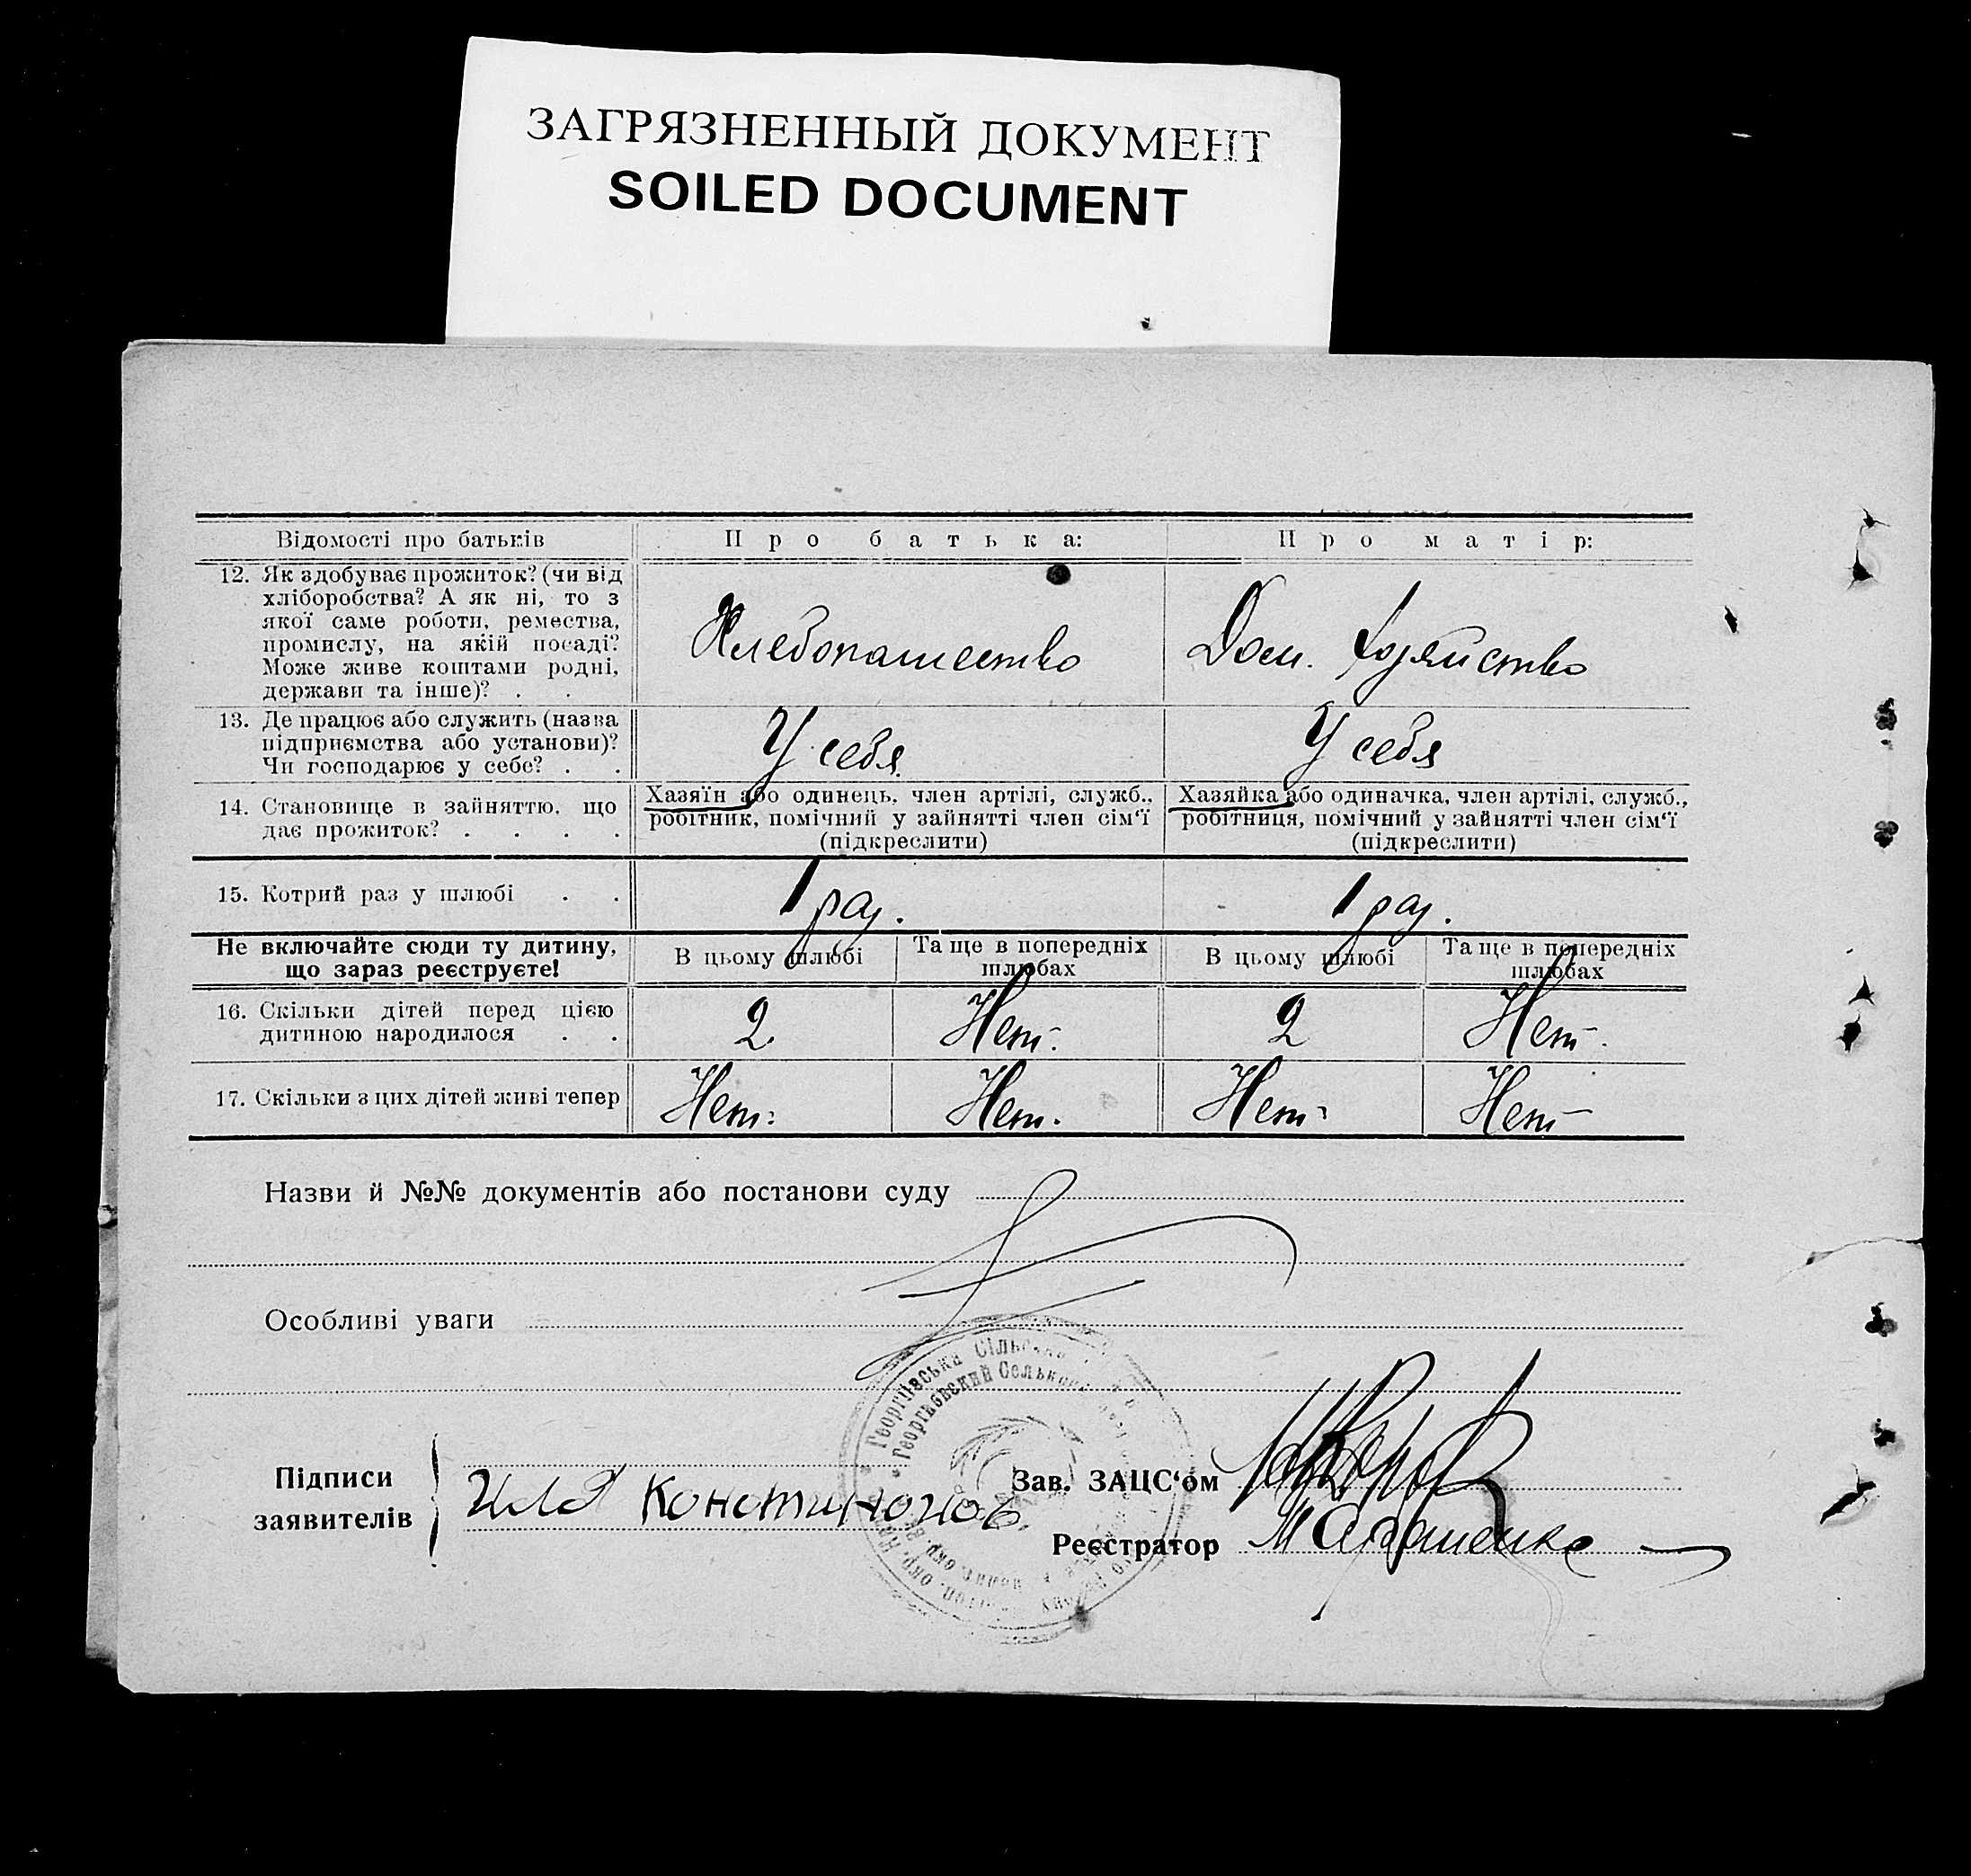 ЗАГРЯЗНЕННЫЙ ДОКУМЕНТ
SOILED DOCUMENT
Відомості про батьків
Про батька:
Про матір:
12. Як здобуває прожиток? (чи від
хліборобства? А як ні, то з
якої саме роботи, ремества,
промислу, на якій посаді?
Може живе коштами родні,
держави та інше)? . .
Хлебопашество
Дом. хозяйство
13. Де працює або служить (назва
підприємства або установи)?
Чи господарює у себе? . .
У себя
У себя
14. Становище в зайняттю, що
дає прожиток? . . . .
Хазяїн або одинець, член артілі, служб.,
робітник, помічний у зайнятті член сім'ї
(підкреслити)
Хазяйка або одиначка, член артілі, служб.,
робітниця, помічний у зайнятті член сім'ї
(підкреслити)
15. Котрий раз у шлюбі . .
1 раз.
1 раз.
Не включайте сюди ту дитину,
що зараз реєструєте!
В цьому шлюбі
Та ще в попередніх
шлюбах
В цьому шлюбі
Та ще в попередніх
шлюбах
16. Скільки дітей перед цією
дитиною народилося . .
2
Нет.
2
Нет.
17. Скільки з цих дітей живі тепер
Нет.
Нет.
Нет
Нет
Назви й №№ документів або постанови суду
Особливі уваги
Георгіївська Сільська
Георгиевский Сельский
Підписи
заявителів
Зав. ЗАЦС'ом
Реєстратор